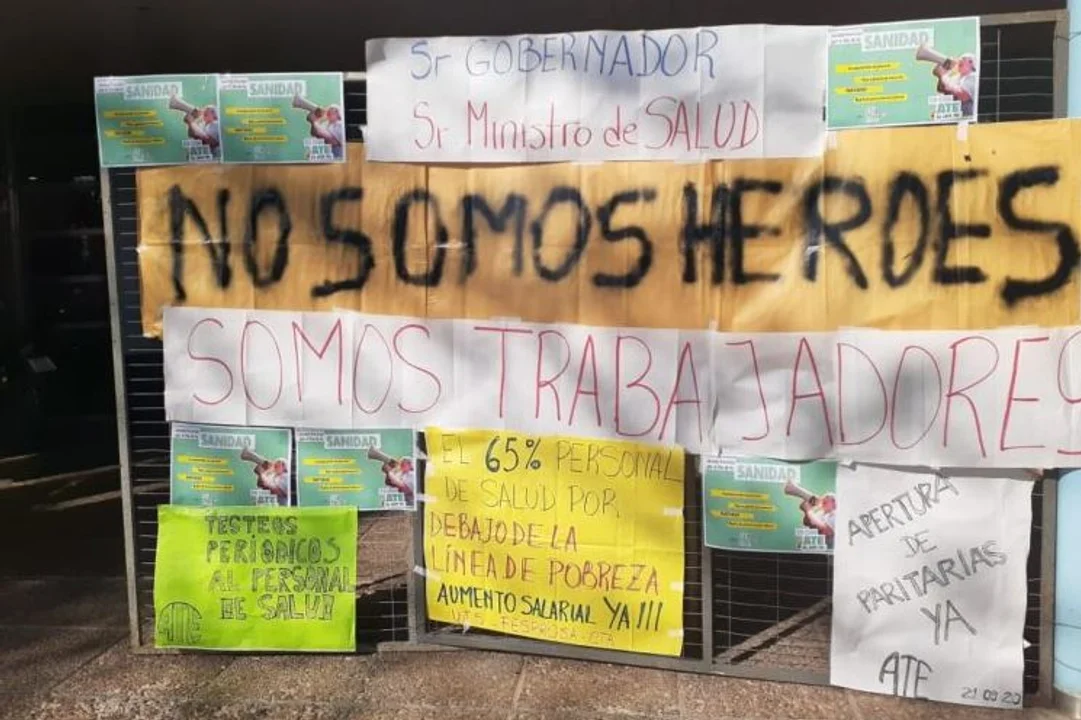 Sr GOBERNADOR
Sr Ministro de SALUD
SANIDAD
SANIDAD
SANIDAD
ATE
ATE
ATE
NO SOMOS HEROES
SOMOS TRABAJADORES
SANIDAD
SANIDAD
SANIDAD
ATE
ATE
ATE
TESTEOS
PERÍODICOS
AL PERSONAL
DE SALUD
ATE
EL 65% PERSONAL
DE SALUD POR
DEBAJO DE LA
LÍNEA DE POBREZA
AUMENTO SALARIAL YA!!!
FESPROSA-CTA
APERTURA
DE
PARITARIAS
YA
ATE
21 09 20